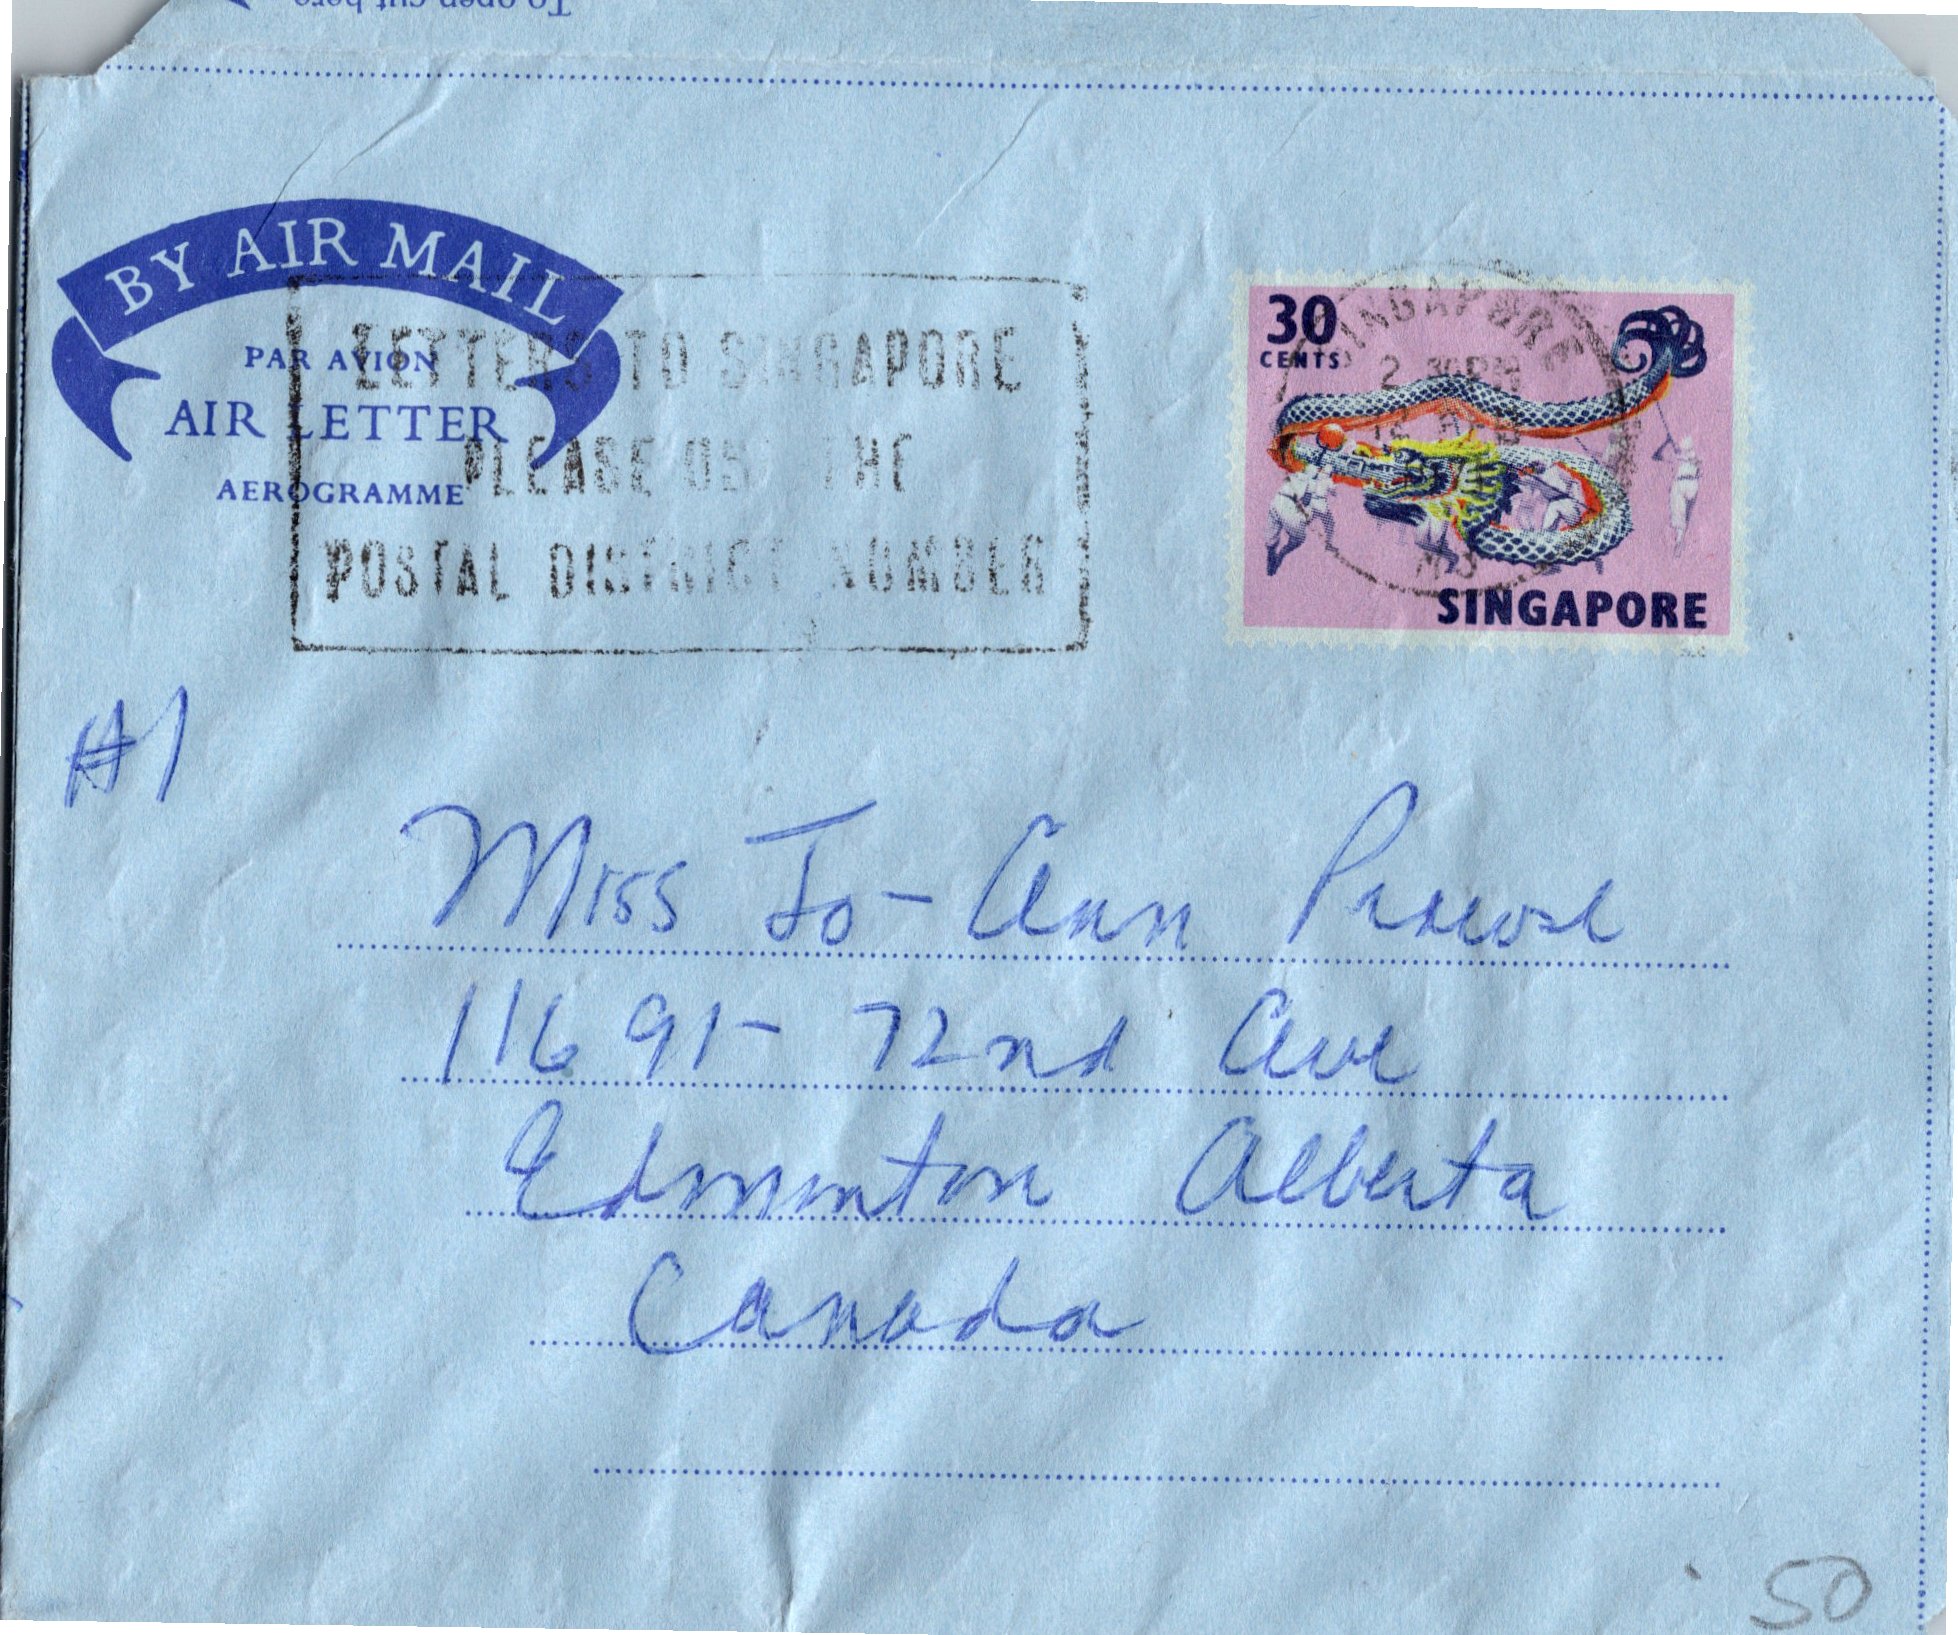 To open cut here
BY AIR MAIL
PAR AVION
AIR LETTER
AEROGRAMME
LETTERS TO SINGAPORE
PLEASE THE
POSTAL DISTRICT NUMBER
30
CENTS
SINGAPORE
2 30PM
SINGAPORE
#1
Miss Jo-Ann Prowse
11691- 72nd Ave
Edmonton Alberta
Canada
50